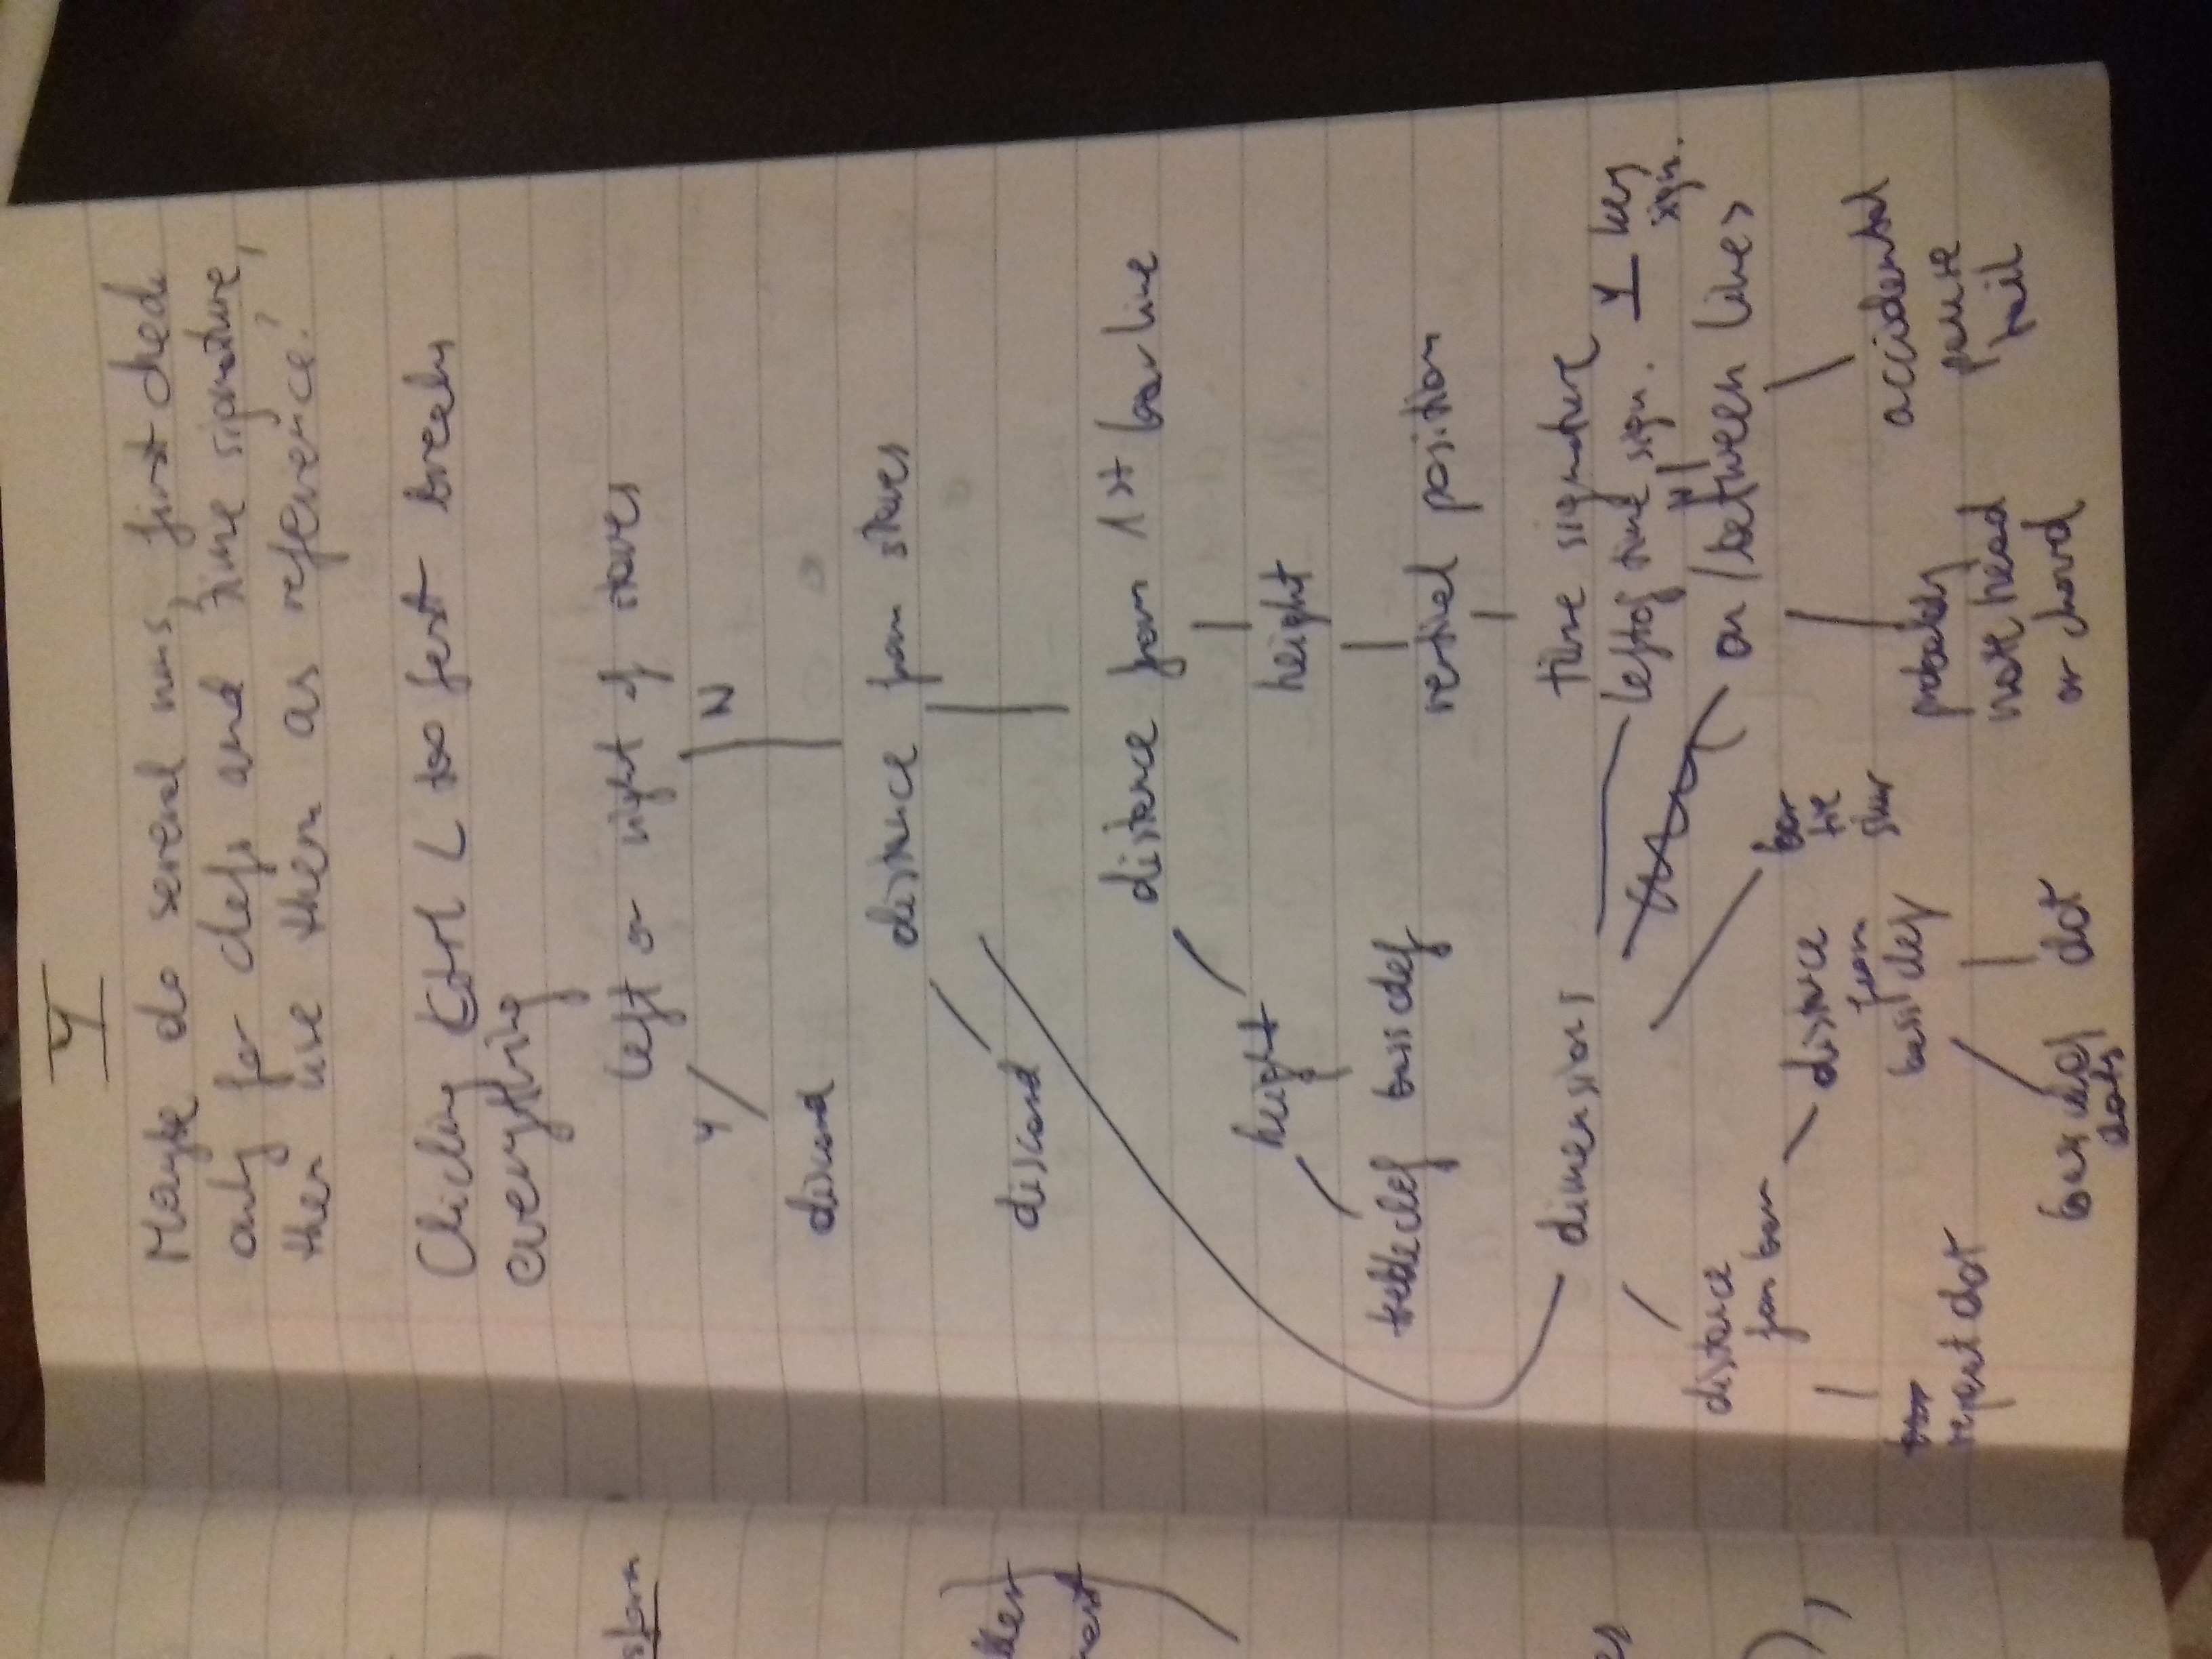 4
Maybe do several runs, first check
only for clefs and time signature,
then use them as reference?
Clicking Ctrl L too fast breaks
everything
left or right of staves
Y N
discard
distance from staves
discard
distance from 1st bar line
height
height
treble clef bass clef
vertical position
dimensions
time signature
left of time sign. Y key
sign.
N
distance
from bar
on/between lines
distance
from
bass clef
bar
tie
slur
repeat dot
bass clef
dots
dot
probably
note head
or chord
accidental
pause
tail